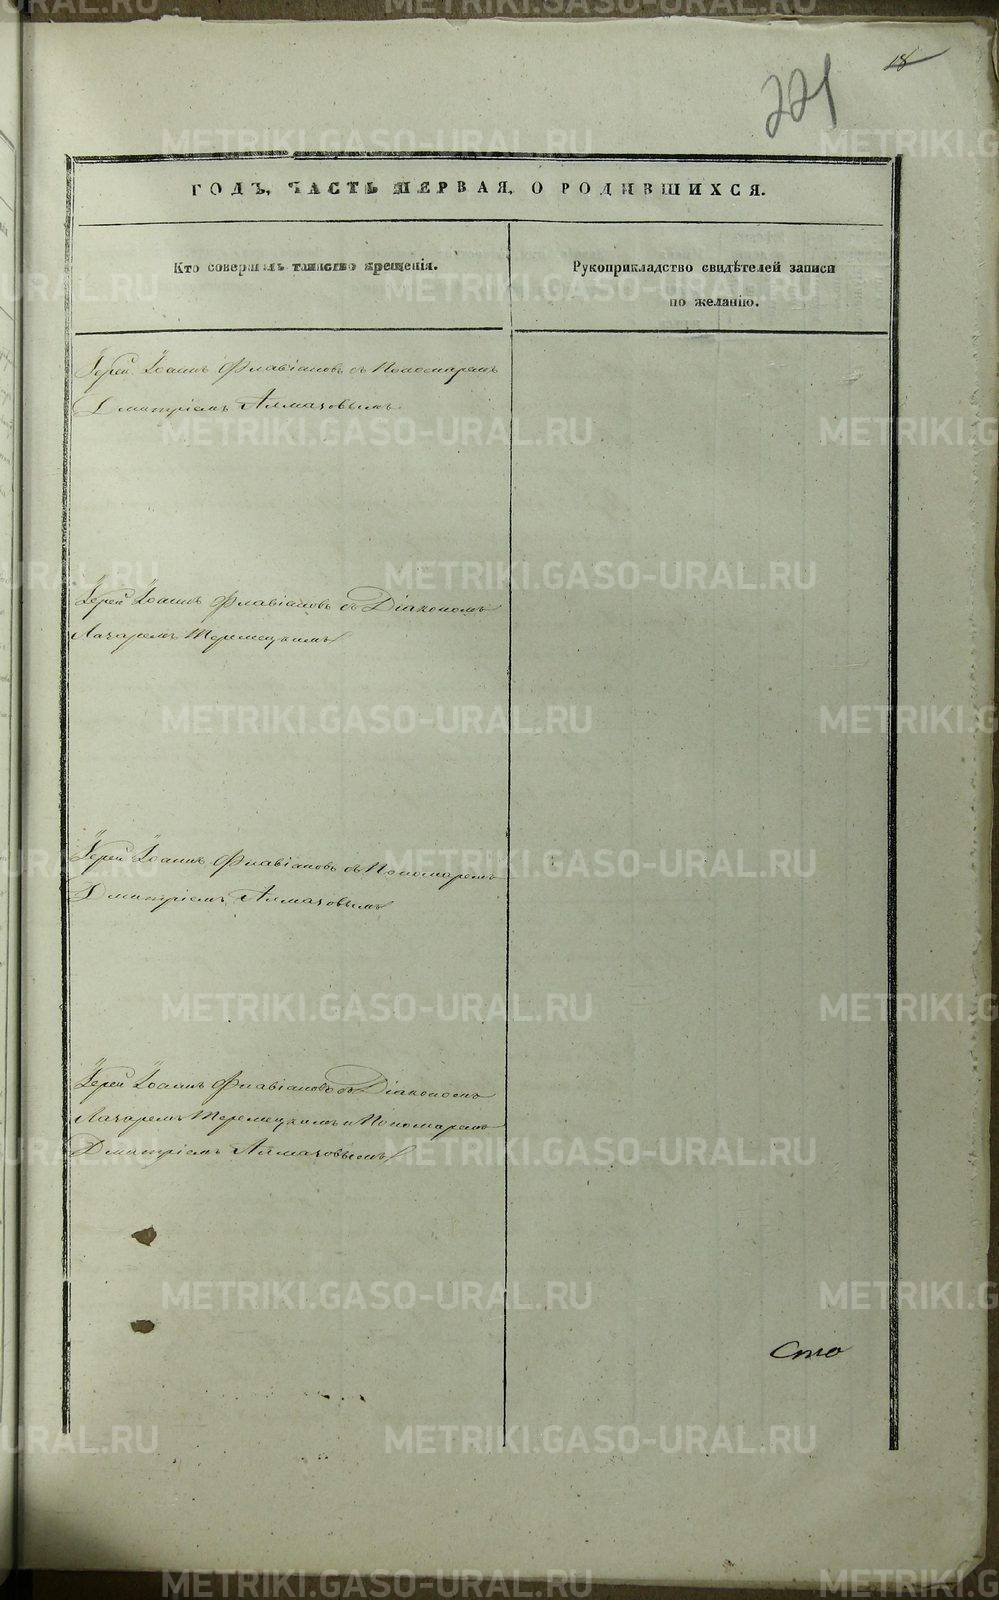 18
221
ГОДЪ, ЧАСТЬ ПЕРВАЯ, О РОДИВШИХСЯ.
Кто совершилъ таинство крещенія.
Рукоприкладство свидѣтелей записи
по желанію.
Іерей Іоаннъ Флавіановъ съ Пономаремъ
Дмитріемъ Алмазовымъ
Іерей Іоаннъ Флавіановъ съ Діакономъ
Лазаремъ Теремецкимъ
Іерей Іоаннъ Флавіановъ съ Пономаремъ
Дмитріемъ Алмазовымъ
Іерей Іоаннъ Флавіановъ съ Діакономъ
Лазаремъ Теремецкимъ и Пономаремъ
Дмитріемъ Алмазовымъ
Сто
METRIKI.GASO-URAL.RU